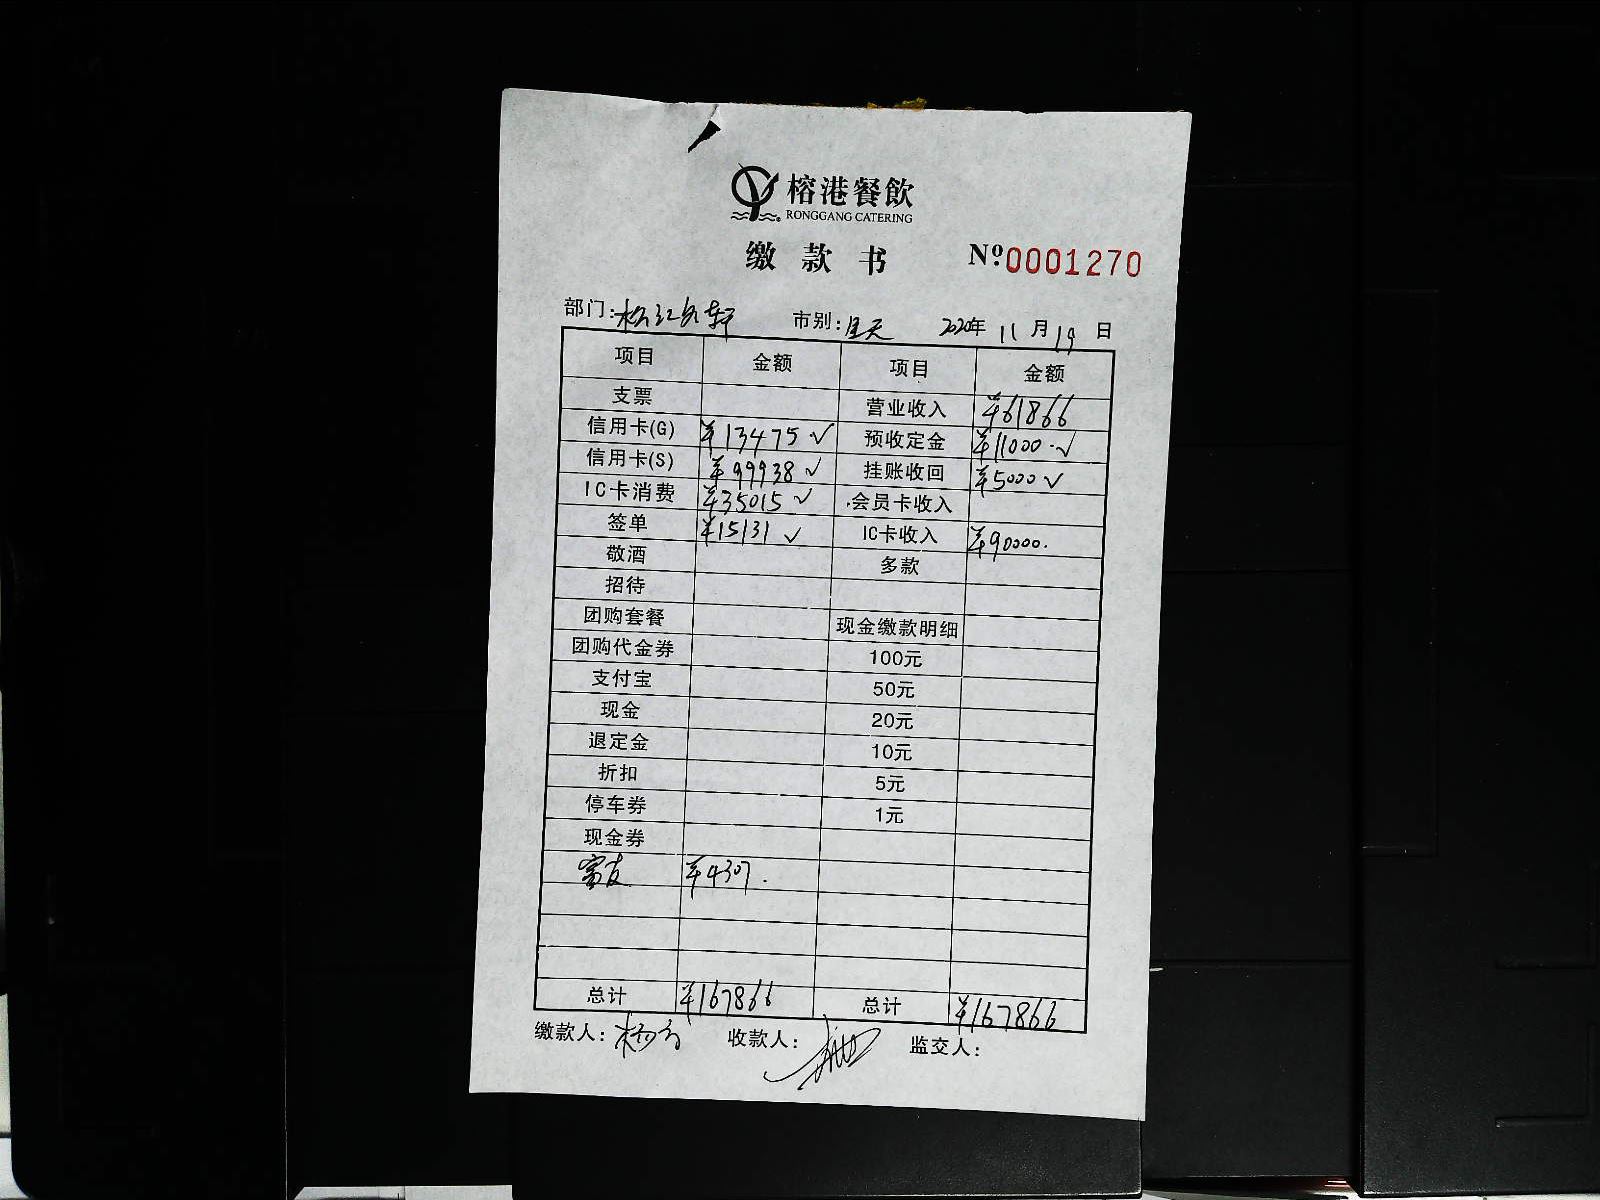 榕港餐飲
RONGGANG CATERING
缴款书 Nº:0001270
部门: 市别:全天 2020年 11 月 19 日
项目 金额 项目 金额
支票 营业收入 ¥61866
信用卡(G) ¥13475 ✓ 预收定金 ¥11000. ✓
信用卡(S) ¥99938 ✓ 挂账收回 ¥5000 ✓
IC卡消费 ¥35015 ✓ 会员卡收入
签单 ¥15131 ✓ IC卡收入 ¥90000.
敬酒 多款
招待
团购套餐 现金缴款明细
团购代金券 100元
支付宝 50元
现金 20元
退定金 10元
折扣 5元
停车券 1元
现金券
富友 ¥4307.
总计 ¥167866 总计 ¥167866
缴款人: 收款人: 监交人: